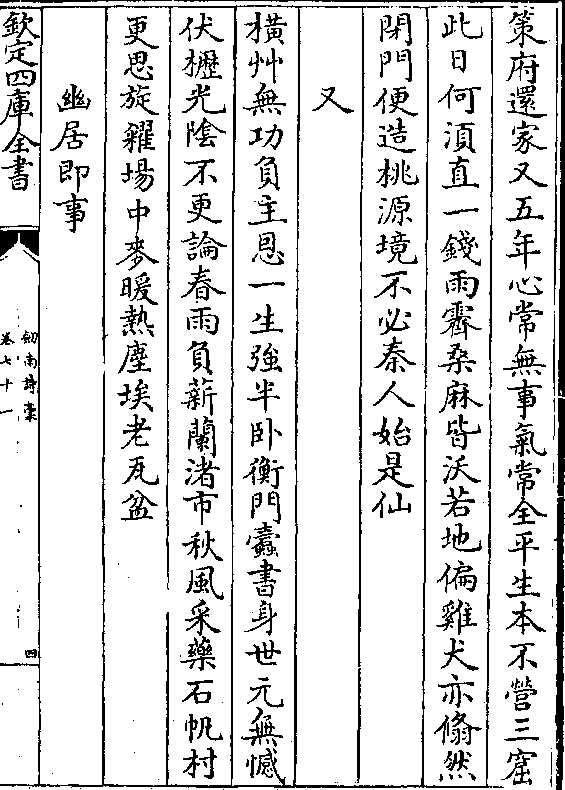 策府還家又五年心常無事氣常全平生本不營三窟
此日何須直一錢雨霽桑麻皆沃若地偏雞犬亦翛然
閉門便造桃源境不必秦人始是仙
又
橫艸無功負主恩一生強半卧衡門蠹書身世元無憾
伏櫪光陰不更論春雨負薪蘭渚市秋風采藥石帆村
更思旋糴場中麥暖熱塵埃老瓦盆
幽居即事
欽定四庫全書
劒南詩稾
卷七十一
四